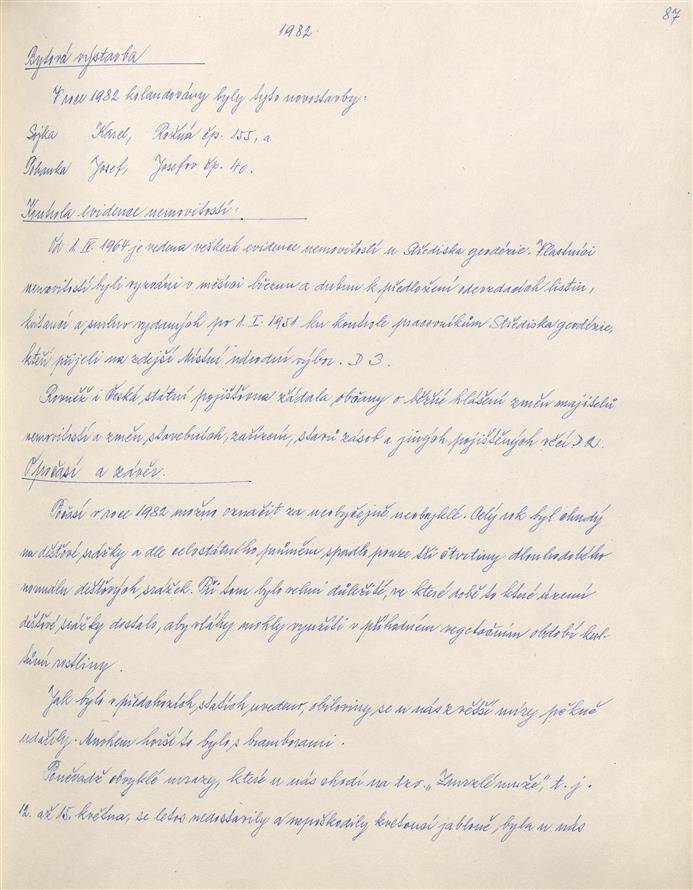 87
1982
Bytová výstavba
V roce 1982 kolaudovány byly tyto novostavby:
Sojka Karel, Rožná čp. 155, a
Josef, Josefov čp. 40.
Kontrola evidence nemovitostí:
Od 1. IV. 1964 je vedena veškerá evidence nemovitostí u Střediska geodézie. Vlastníci
nemovitostí byli vyzváni v měsíci březnu a dubnu k předložení odevzdacích listin,
a smluv vydaných po 1. I. 1951 ku kontrole pracovníkům Střediska geodézie,
kteří přijeli na zdejší Místní národní výbor. D 3.
Rovněž i Česká státní pojišťovna žádala občany o běžné hlášení změn majitelů
nemovitostí a změn stavebních, zařízení, stavů zásob a jiných pojištěných věcí. D 2.
O počasí a závěr.
Počasí v roce 1982 možno označit za neobyčejně neobvyklé. Celý rok byl chudý
na dešťové srážky a dle celostátního průměru spadlo pouze tři čtvrtiny dlouhodobého
normálu dešťových srážek. Při tom bylo velmi důležité, ve které době to které území
dešťové srážky dostalo, aby vláhy mohly využíti v příhodném vegetačním období kul-
turní rostliny.
Jak bylo v předchozích statích uvedeno, obiloviny se u nás z větší míry pěkně
udařily. Mnohem horší to bylo s bramborami.
Poněvadž obvyklé mrazy, které u nás chodí na tzv. „Zmrzlé muže", t. j.
12. až 15. května, se letos nedostavily a nepoškodily kvetoucí jabloně, byla u nás